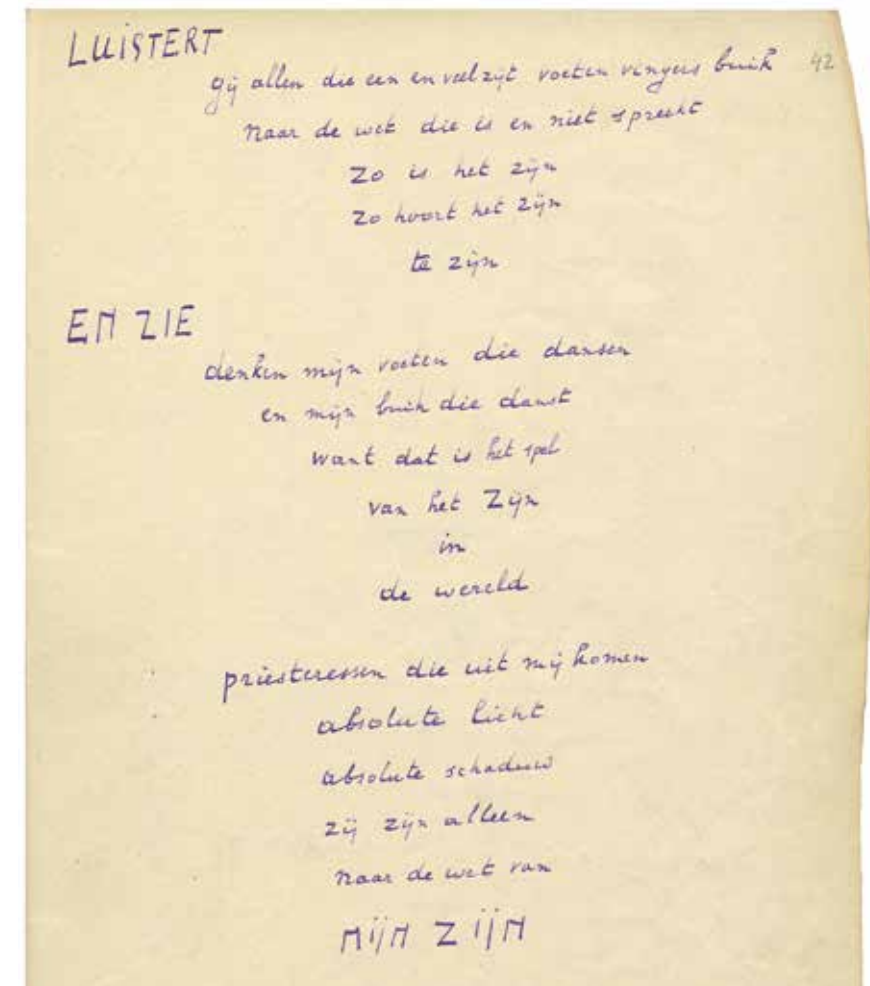 LUISTERT
gij allen die een en veel zijt voeten vingers buik 42
naar de wet die is en niet spreekt
Zo is het zijn
Zo hoort het zijn
te zijn
EN ZIE
denken mijn voeten die dansen
en mijn buik die danst
want dat is het spel
van het Zijn
in
de wereld
priesteressen die uit mij komen
absolute licht
absolute schaduw
zij zijn alleen
naar de wet van
MIJN ZIJN